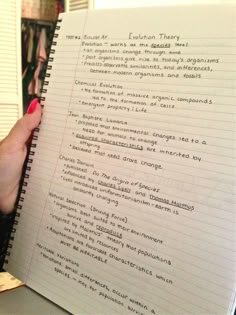 Evolution Theory
Evolution - works at the species level
• all organisms change through time
• past organisms give rise to today's organisms
• predicts observable similarities and differences
between modern organisms and fossils
Chemical Evolution
• the formation of massive organic compounds
led to the formation of cells
• emergent property: Life
Jean Baptiste Lamarck
• proposed that environmental changes led to a
need for animals to change
• acquired characteristics are inherited by
• believed that need drove change
Charles Darwin
• published On The Origin of Species
• influenced by Charles Lyell and Thomas Malthus
• Lyell introduced uniformitarianism - Earth is
always changing
Natural Selection (Driving Force)
• organisms best suited to their environment
survive and reproduce
• inspired by Malthus' theory that populations
are limited by resources
• there are favorable characteristics which
must be inheritable
• small differences occur within a
species